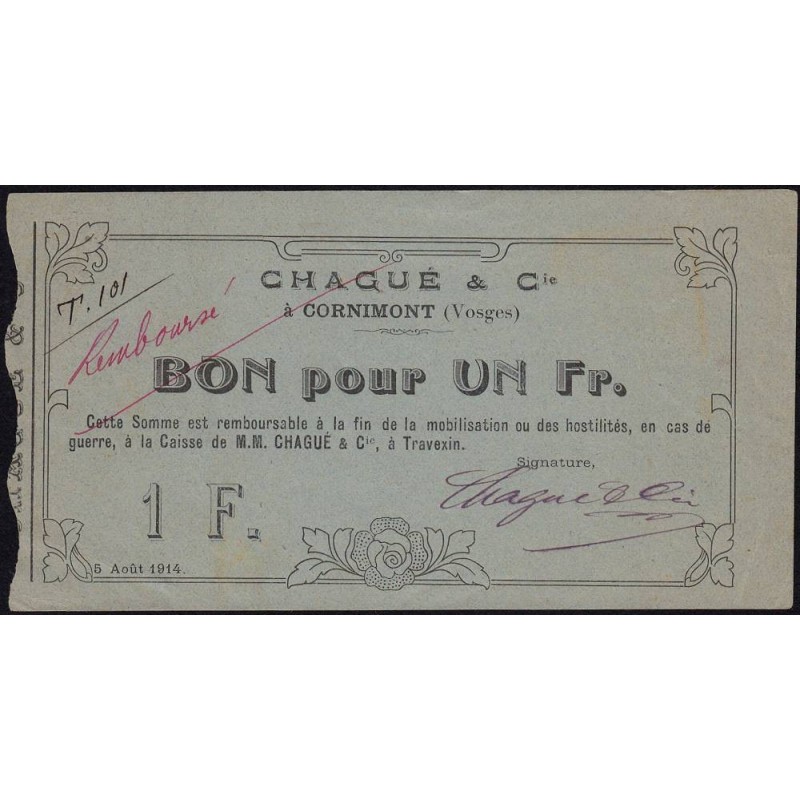 CHAGUÉ & Cie
à CORNIMONT (Vosges)
T. 101
Remboursé
BON pour UN Fr.
Cette Somme est remboursable à la fin de la mobilisation ou des hostilités, en cas de
guerre, à la Caisse de M.M. CHAGUÉ & Cie, à Travexin.
Signature,
Chagué & Cie
1 F.
5 Août 1914.